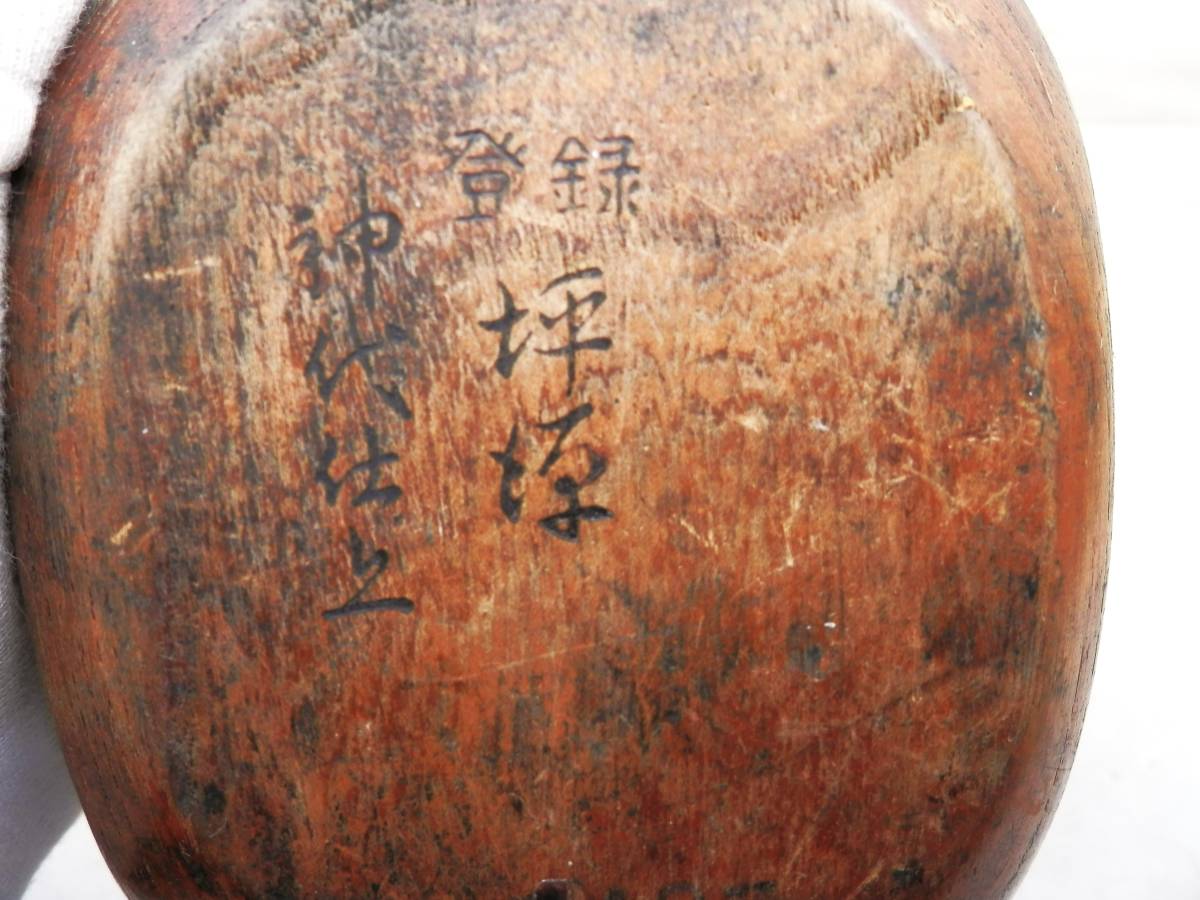 登録
坪
神代仕上